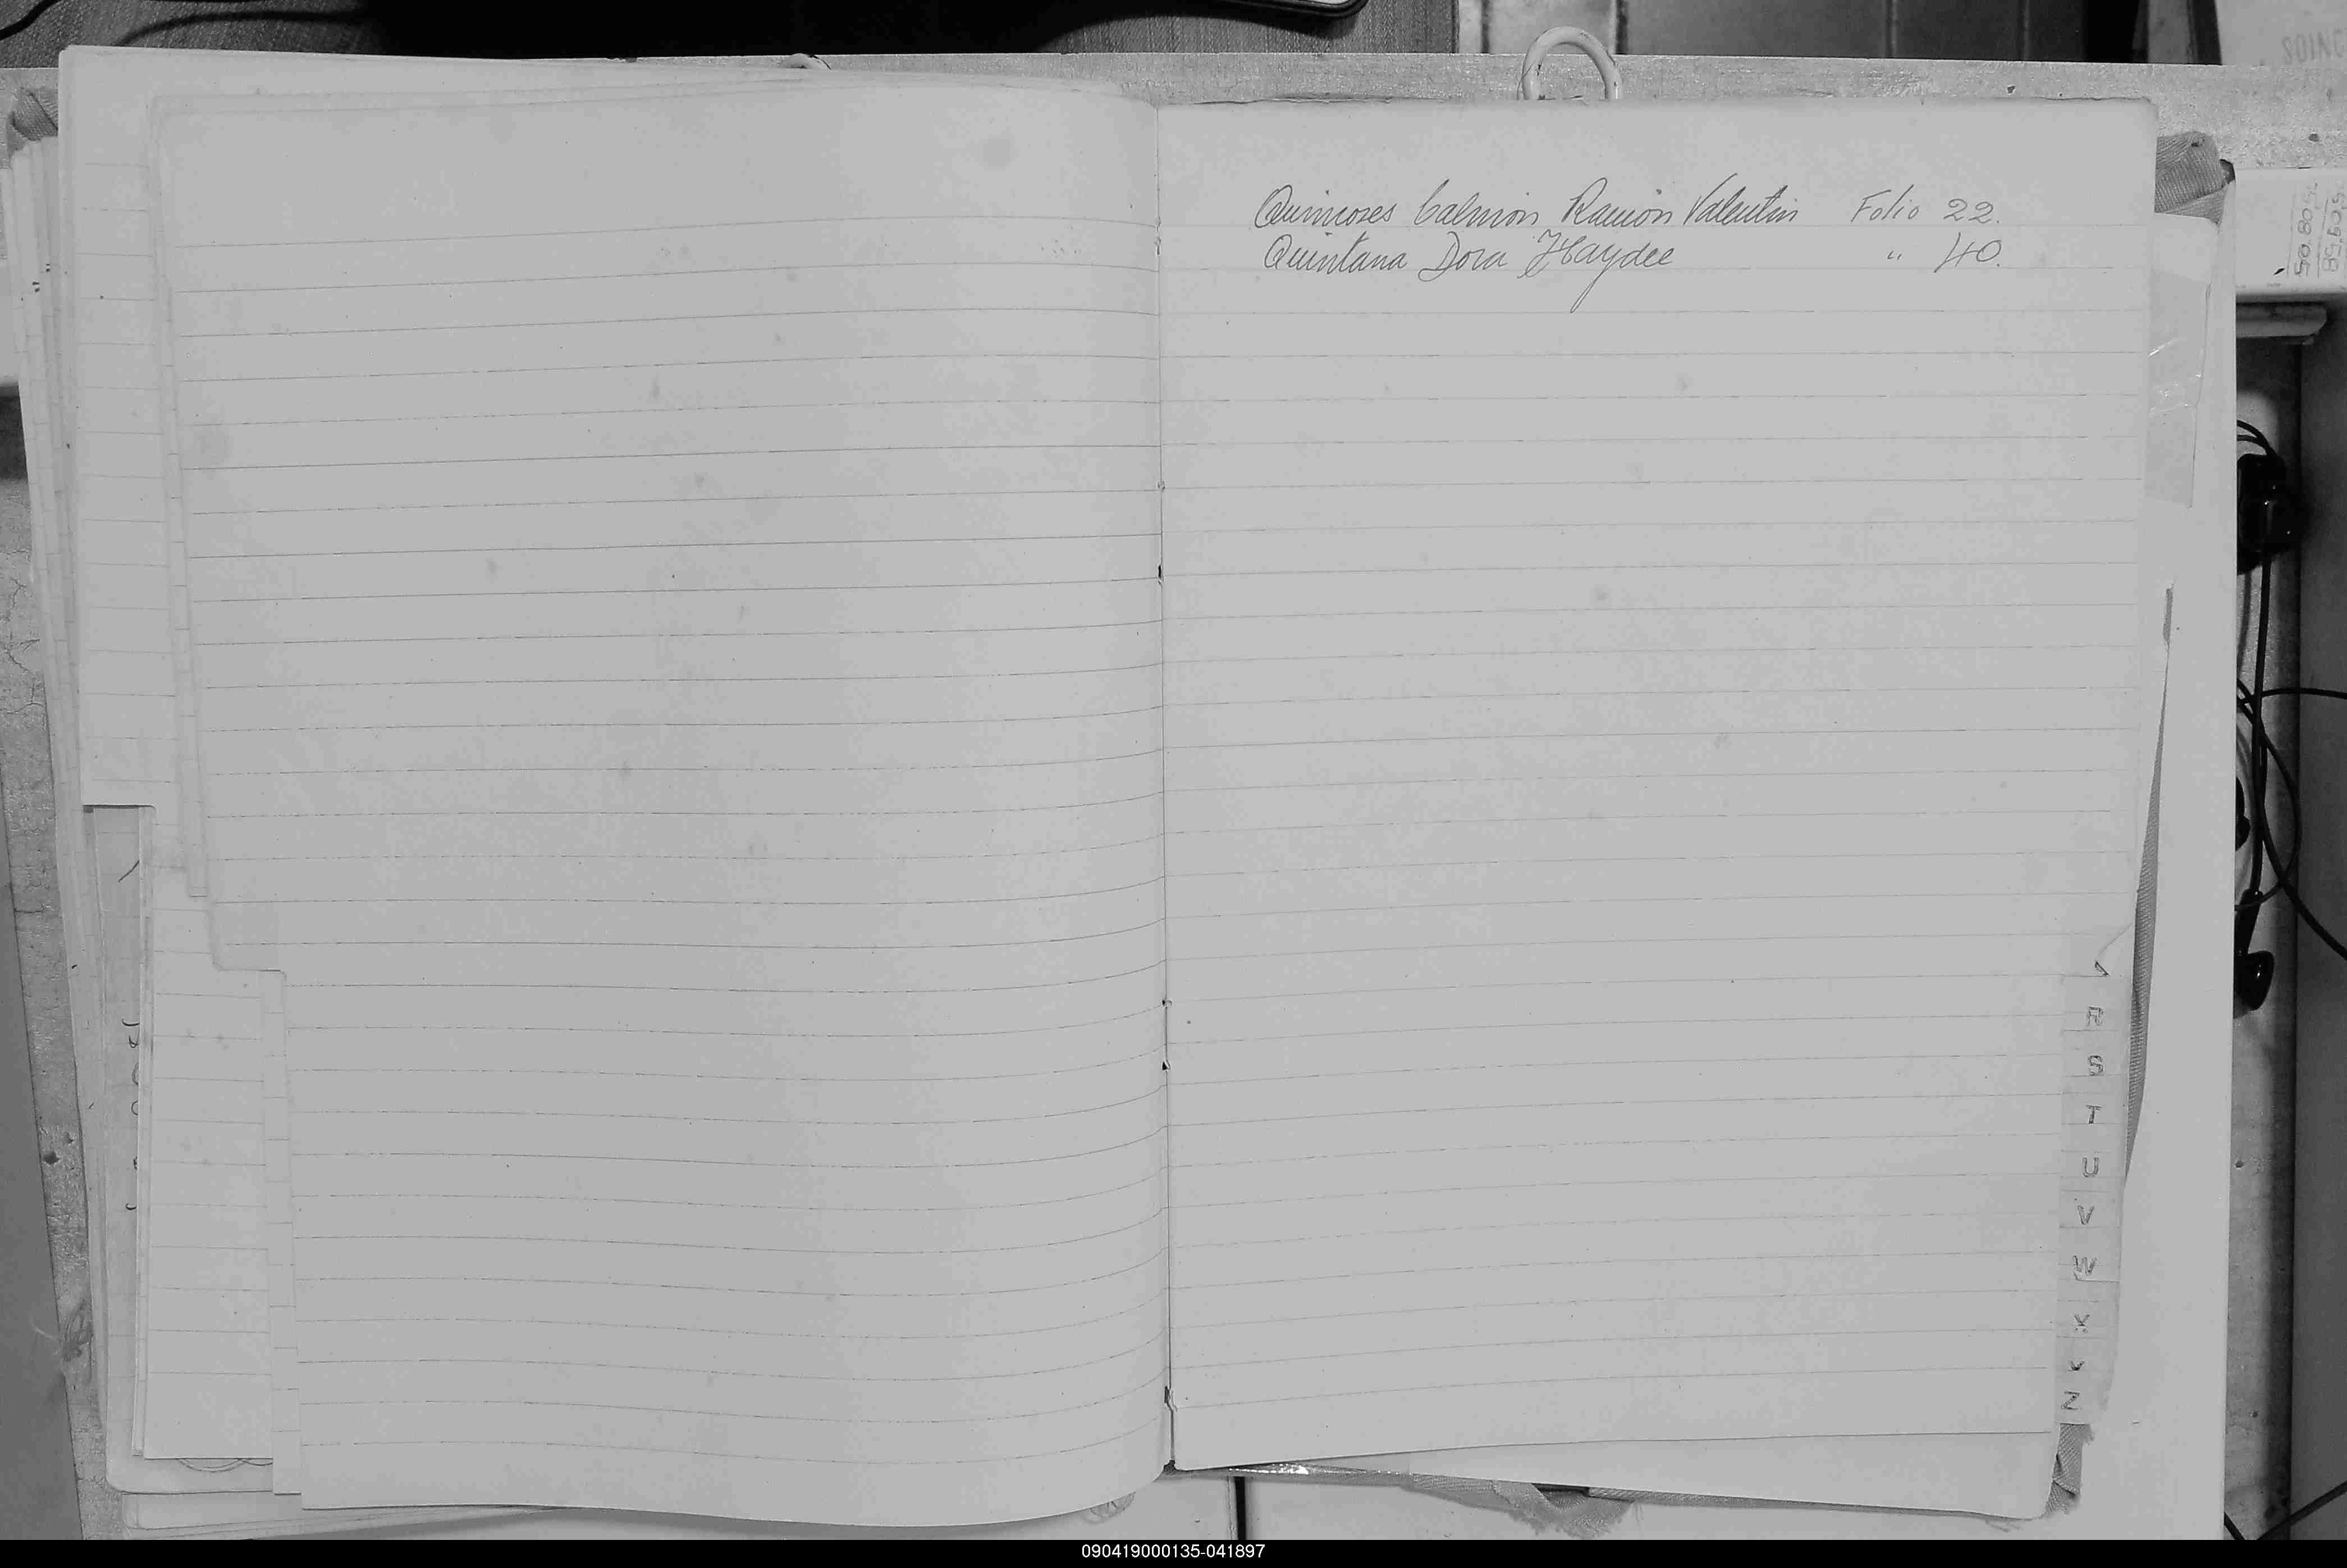 Quinioses Calmion Ramón Valentin Folio 22.
Quintana Dora Haydee " 40.
R
S
T
U
V
W
X
Y
Z
090419000135-041897